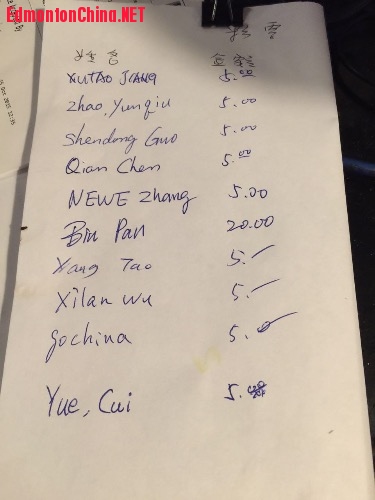 EdmontonChina.NET
姓名
XUTAO JIANG 5.00
Zhao, Yunqiu 5.00
Shendong Guo 5.00
Qian Chen 5.00
NEWE Zhang 5.00
Bin Pan 20.00
Yang Tao 5.-
Xilan Wu 5.-
gochina 5.
Yue, Cui 5.